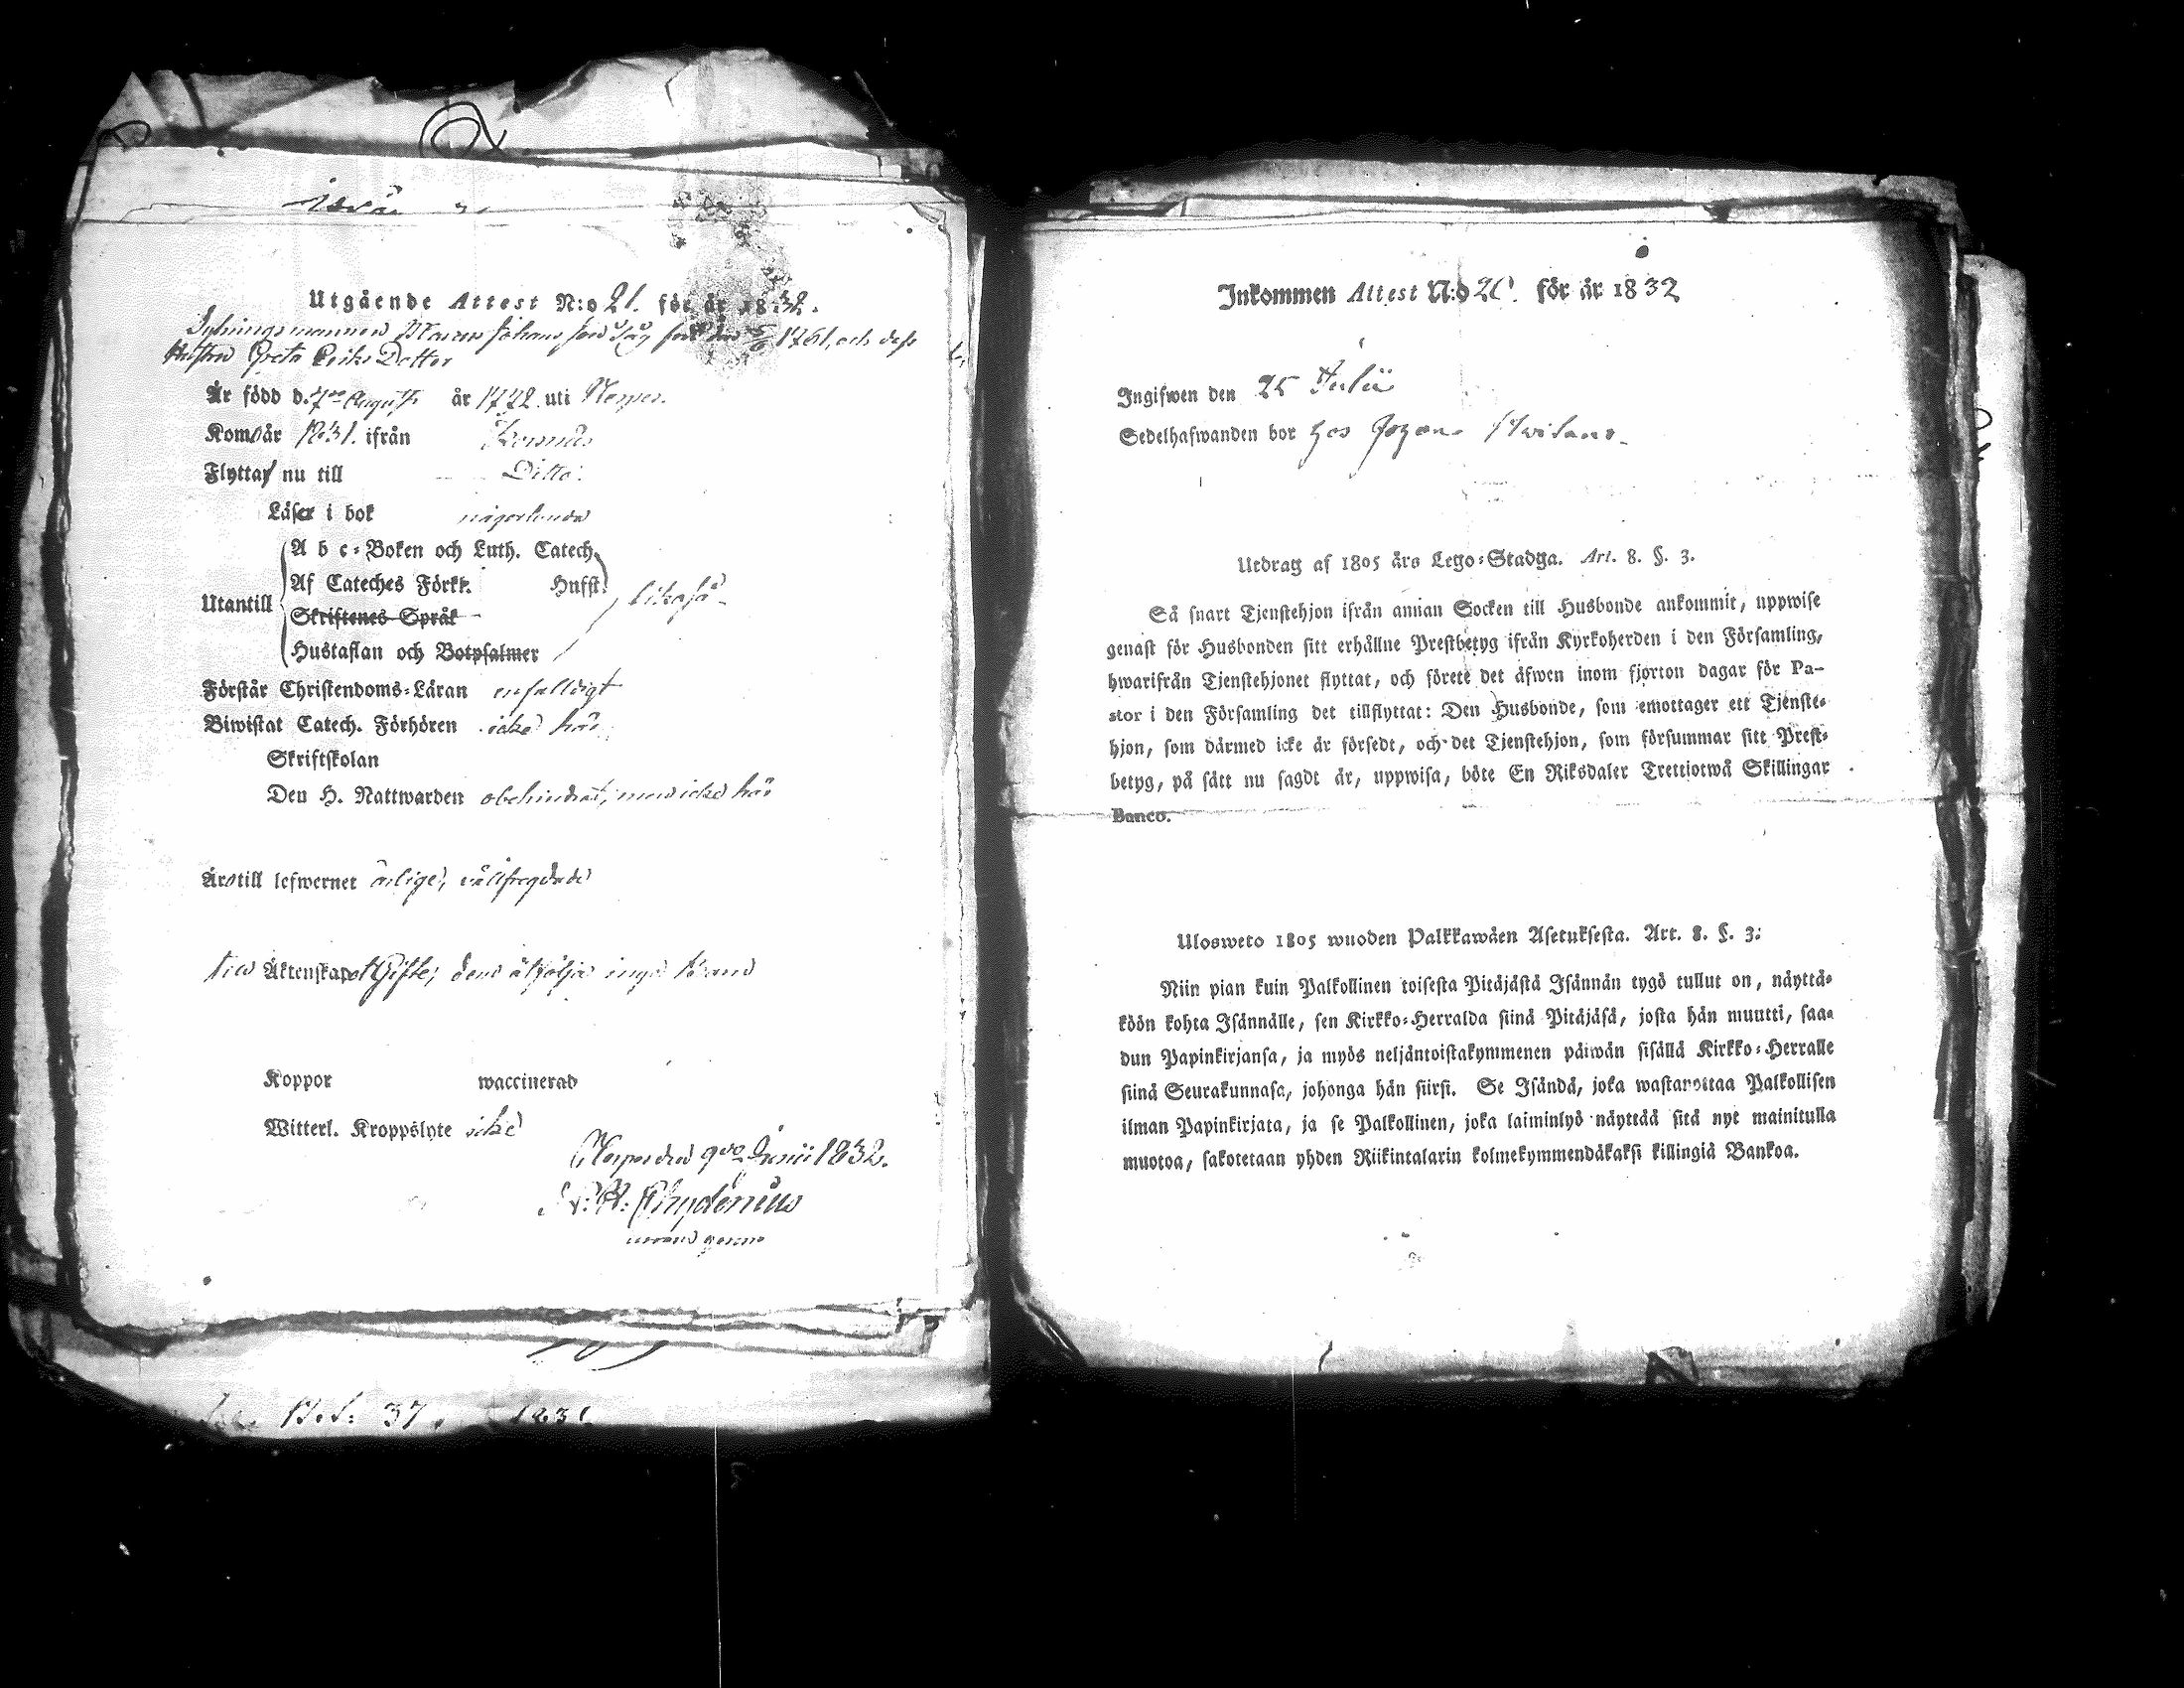 Utgående Attest N:o 21. för år 1832.
Johans son född den 1761, och dess
Hustru Greta Eriks Dotter
Är född d. 7de Augusti år 1772 uti Nerpes.
Kom år 1831. ifrån
Flyttar nu till Ditto.
Läser i bok någorlunda
A b c-Boken och Luth. Catech.
Af Cateches Förkl. Hufst.
Utantill likaså
Skriftenes Språk
Hustaflan och Botpsalmer
Förstår Christendoms-Läran enfaldigt
Biwistat Catech. Förhören icke här
Skriftskolan
Den H. Nattwarden obehindrat, men icke här
Äro till lefwernet ärlige, wälfrägdade
till Äktenskapet Gifte, dem åtfölja inga barn
Koppor waccinerad
Witterl. Kroppslyte icke
Nerpes den 9de Junii 1832.
Chydenius
Inkommen Attest N:o för år 1832
Ingifwen den 25 Julii
Sedelhafwanden bor hos
Utdrag af 1805 års Lego-Stadga. Art. 8. §. 3.
Så snart Tjenstehjon ifrån annan Socken till Husbonde ankommit, uppwise
genast för Husbonden sitt erhållne Prestbetyg ifrån Kyrkoherden i den Församling,
hwarifrån Tjenstehjonet flyttat, och förete det äfwen inom fjorton dagar för Pa-
stor i den Församling det tillflyttat: Den Husbonde, som emottager ett Tjenste-
hjon, som därmed icke är försedt, och det Tjenstehjon, som försummar sitt Prest-
betyg, på sätt nu sagdt är, uppwisa, böte En Riksdaler Trettiotwå Skillingar
Banco.
Ulosweto 1805 wuoden Palkkawäen Asetuksesta. Art. 8. §. 3:
Niin pian kuin Palkollinen toisesta Pitäjästä Isännän tygö tullut on, näyttä-
köön kohta Isännälle, sen Kirkko-Herralda siinä Pitäjäsä, josta hän muutti, saa-
dun Papinkirjansa, ja myös neljäntoistakymmenen päiwän sisällä Kirkko-Herralle
siinä Seurakunnasa, johonga hän siirsi. Se Isändä, joka wastanottaa Palkollisen
ilman Papinkirjata, ja se Palkollinen, joka laiminlyö näyttää sitä nyt mainitulla
muotoa, sakotetaan yhden Riikintalarin kolmekymmendäkaksi killingiä Bankoa.